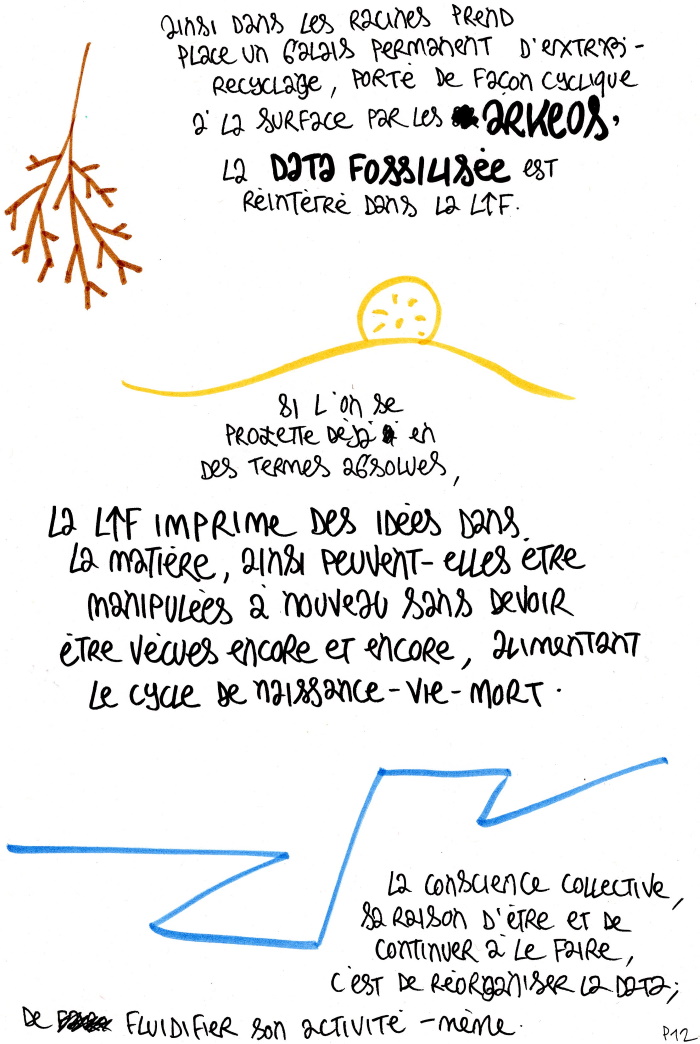 AINSI DANS LES RACINES PREND
PLACE UN BALAIS PERMANENT D'EXTRA-
RECYCLAGE, PORTÉ DE FAÇON CYCLIQUE
À LA SURFACE PAR LES ARKEOS,
LA DATA FOSSILISÉE EST
RÉINTERRÉ DANS LA L↑F.
SI L'ON SE
PROJETTE DÉJÀ EN
DES TERMES ABSOLUES,
LA L↑F IMPRIME DES IDÉES DANS
LA MATIÈRE, AINSI PEUVENT-ELLES ÊTRE
MANIPULÉES À NOUVEAU SANS DEVOIR
ÊTRE VÉCUES ENCORE ET ENCORE, ALIMENTANT
LE CYCLE DE NAISSANCE-VIE-MORT.
LA CONSCIENCE COLLECTIVE,
SA RAISON D'ÊTRE ET DE
CONTINUER À LE FAIRE,
C'EST DE RÉORGANISER LA DATA;
DE FLUIDIFIER SON ACTIVITÉ -MÊME.
P12